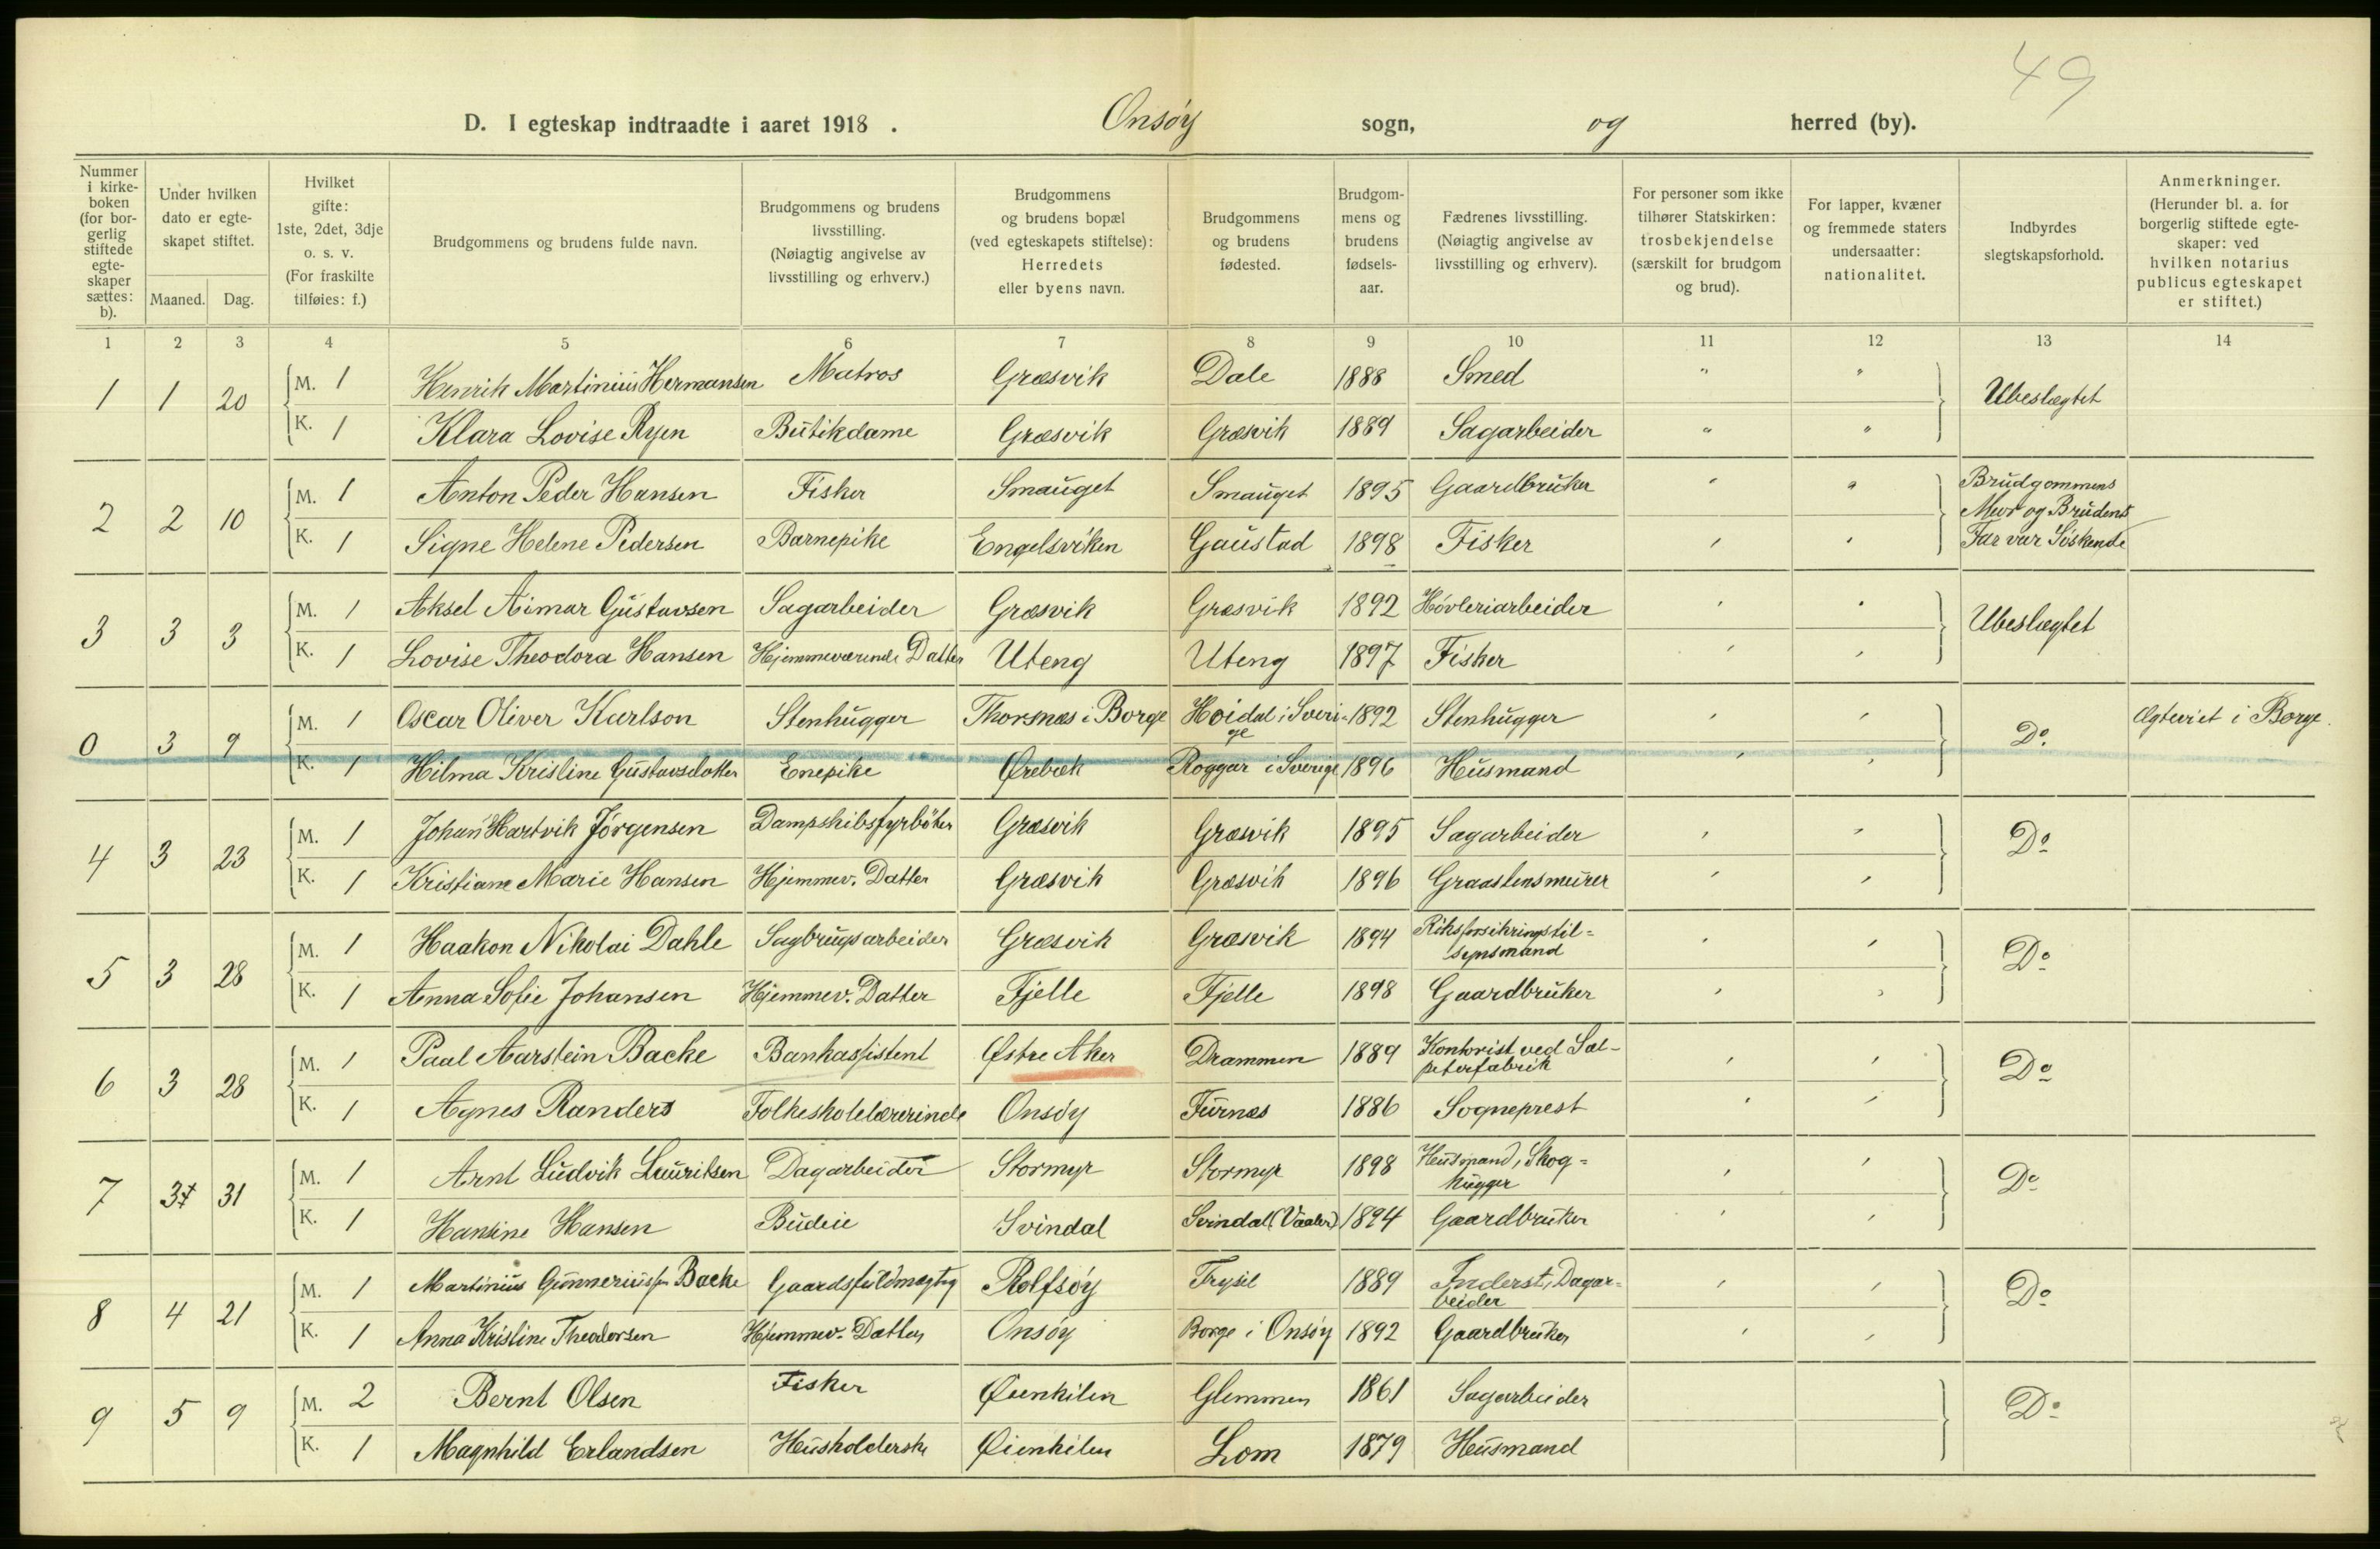 49
D. I egteskap indtraadte i aaret 1918 . Onsøy sogn, og herred (by).
Nummer i kirke-boken (for bor-gerlig stiftede egte-skaper sættes: b).
Under hvilken dato er egte-skapet stiftet.
Maaned. Dag.
Hvilket gifte: 1ste, 2det, 3dje o. s. v. (For fraskilte tilføies: f.)
Brudgommens og brudens fulde navn.
Brudgommens og brudens livsstilling. (Nøiagtig angivelse av livsstilling og erhverv.)
Brudgommens og brudens bopæl (ved egteskapets stiftelse): Herredets eller byens navn.
Brudgommens og brudens fødested.
Brudgom-mens og brudens fødsels-aar.
Fædrenes livsstilling. (Nøiagtig angivelse av livsstilling og erhverv).
For personer som ikke tilhører Statskirken: trosbekjendelse (særskilt for brudgom og brud).
For lapper, kvæner og fremmede staters undersaatter: nationalitet.
Indbyrdes slegtskapsforhold.
Anmerkninger. (Herunder bl. a. for borgerlig stiftede egte-skaper: ved hvilken notarius publicus egteskapet er stiftet.)
1 2 3 4 5 6 7 8 9 10 11 12 13 14
1 1 20 M. 1 Henrik Martinius Hermansen Matros Græsvik Dale 1888 Smed " " Ubeslægtet
K. 1 Klara Lovise Ryen Butikdame Græsvik Græsvik 1889 Sagarbeider " "
2 2 10 M. 1 Anton Peder Hansen Fisker Smauget Smauget 1895 Gaardbruker " " Brudgommens Mor og Brudens Far var Søskende
K. 1 Signe Helene Pedersen Barnepike Engelsviken Gaustad 1898 Fisker " "
3 3 3 M. 1 Aksel Aimar Gustavsen Sagarbeider Græsvik Græsvik 1892 Høvleriarbeider " " Ubeslægtet
K. 1 Lovise Theodora Hansen Hjemmeværende Datter Uteng Uteng 1897 Fisker " "
0 3 9 M. 1 Oscar Oliver Karlson Stenhugger Thorsnæs i Borge Hoidal i Sverige 1892 Stenhugger " " Do. Ægteviet i Borge.
K. 1 Hilma Kristine Gustavsdotter Enepike Ørebæk Roggar i Sverige 1896 Husmand " "
4 3 23 M. 1 Johan Hartvik Jørgensen Dampskibsfyrbøter Græsvik Græsvik 1895 Sagarbeider " " Do
K. 1 Kristiane Marie Hansen Hjemmev. Datter Græsvik Græsvik 1896 Graastensmurer " "
5 3 28 M. 1 Haakon Nikolai Dahle Sagbrugsarbeider Græsvik Græsvik 1894 Riksforsikringstil=synsmand " " Do
K. 1 Anna Sofie Johansen Hjemmev. Datter Fjelle Fjelle 1898 Gaardbruker " "
6 3 28 M. 1 Paal Aarstein Backe Bankassistent Østre Aker Drammen 1889 Kontorist ved Sal-peterfabrik " " Do
K. 1 Agnes Randers Folkeskolelærerinde Onsøy Furnæs 1886 Sogneprest " "
7 3 31 M. 1 Arnt Ludvik Lauritsen Dagarbeider Stormyr Stormyr 1898 Husmand, Skog=hugger " " Do
K. 1 Hansine Hansen Budeie Svindal Svindal (Vaaler) 1894 Gaardbruker " "
8 4 21 M. 1 Martinius Gunneriussen Backe Gaardsfuldmægtig Rolfsøy Trysil 1889 Inderst, Dagar=beider " " Do
K. 1 Anna Kristine Theodorsen Hjemmev. Datter Onsøy Borge i Onsøy 1892 Gaardbruker " "
9 5 9 M. 2 Bernt Olsen Fisker Øienkilen Glemmen 1861 Sagarbeider Do
K. 1 Magnhild Erlandsen Husholderske Øienkilen Lom 1879 Husmand